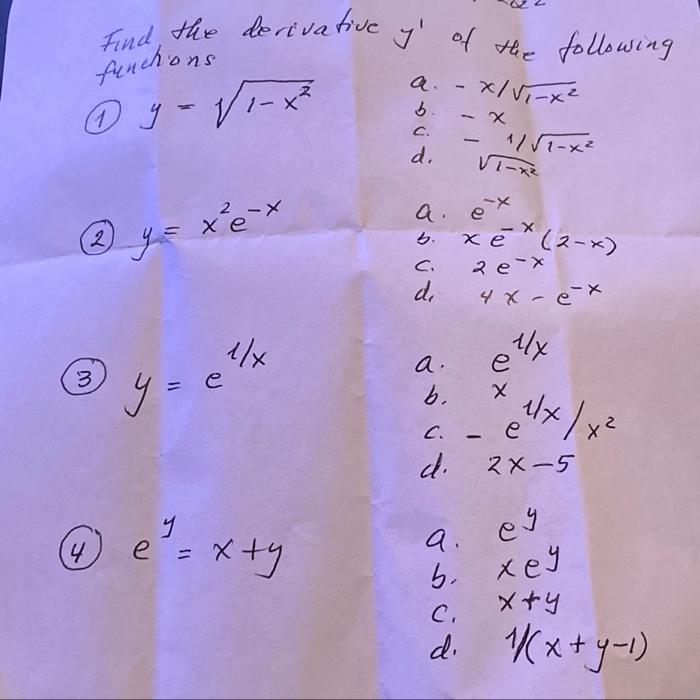 Find the derivative y' of the following
functions
① y = √(1-x²)
a. - x/√(1-x²)
b. - x
c. - 1/√(1-x²)
d. √(1-x²)
② y = x²e^(-x)
a. e^(-x)
b. x e^(-x) (2-x)
c. 2 e^(-x)
d. 4x - e^(-x)
③ y = e^(1/x)
a. e^(1/x)
b. x
c. - e^(1/x) / x²
d. 2x-5
④ e^y = x+y
a. e^y
b. xe^y
c. x+y
d. 1/(x+y-1)